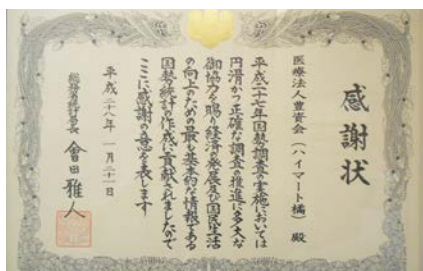 感謝状
医療法人豊資会(ハイマート橘)殿
平成二十七年国勢調査の実施においては
円滑かつ正確な調査の推進に多大な
御協力を賜り経済の発展及び国民生活
の向上のための最も基本的な情報である
国勢統計の作成に貢献されましたので
ここに感謝の意を表します
平成二十八年一月二十一日
総務省統計局長 會田雅人